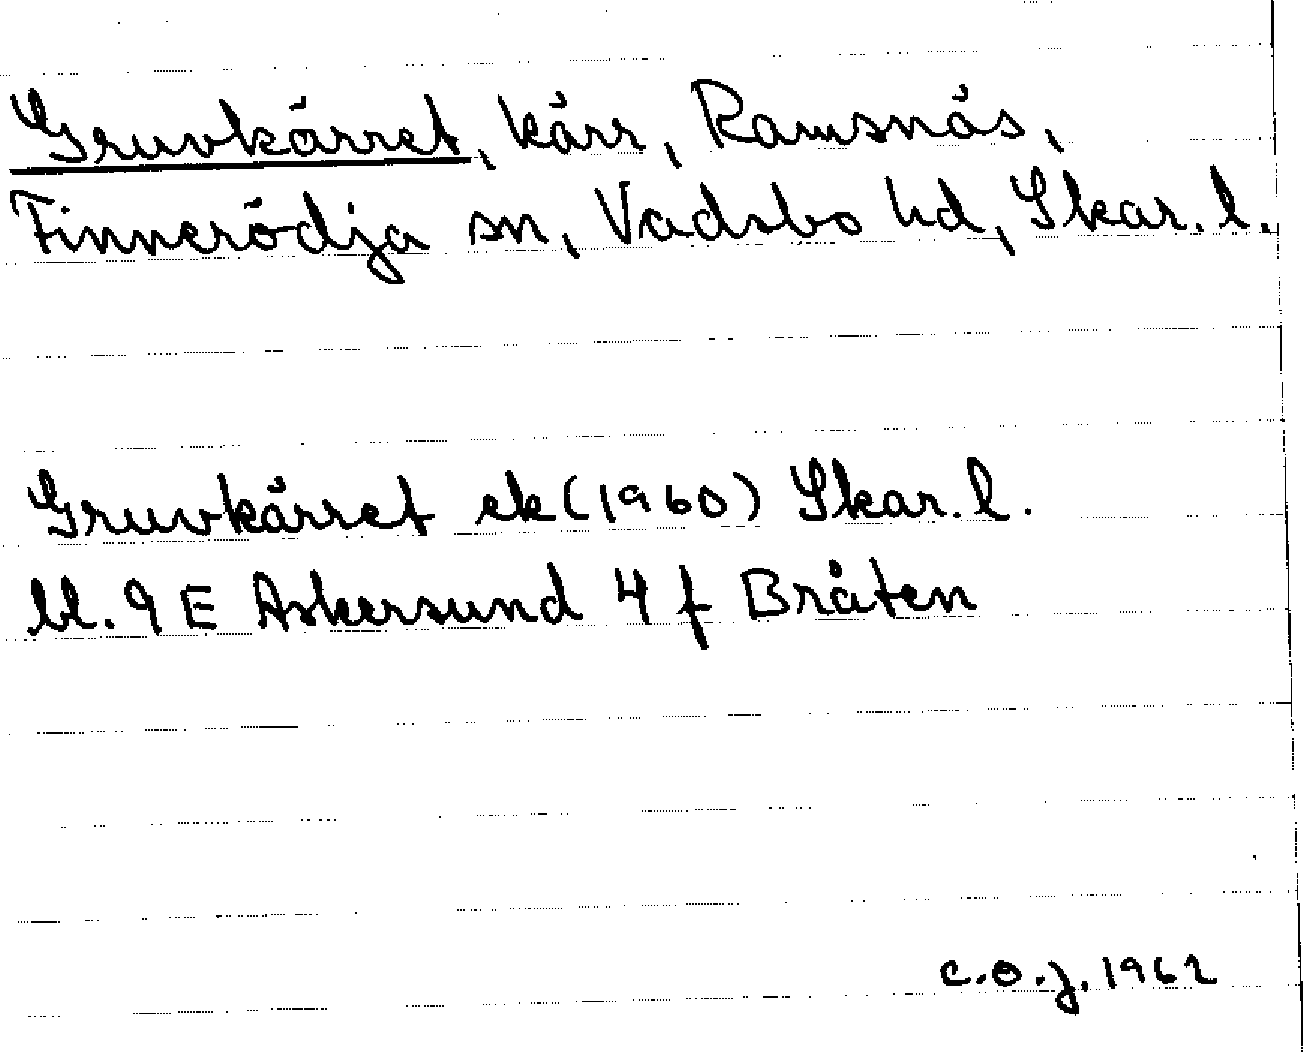 Gruvkärret, kärr, Ramsnäs,
Finnerödja sn, Vadsbo hd, Skar. l.
Gruvkärret ek (1960) Skar. l.
bl. 9 E Askersund 4 f Bråten
C.O.J. 1962